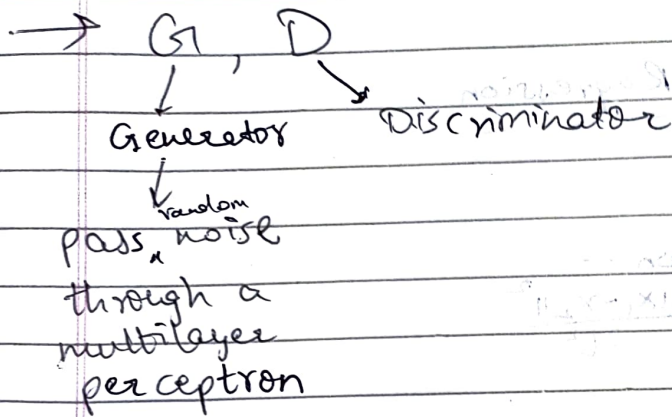 → G, D
Generator Discriminator
pass random noise
through a
multilayer
perceptron